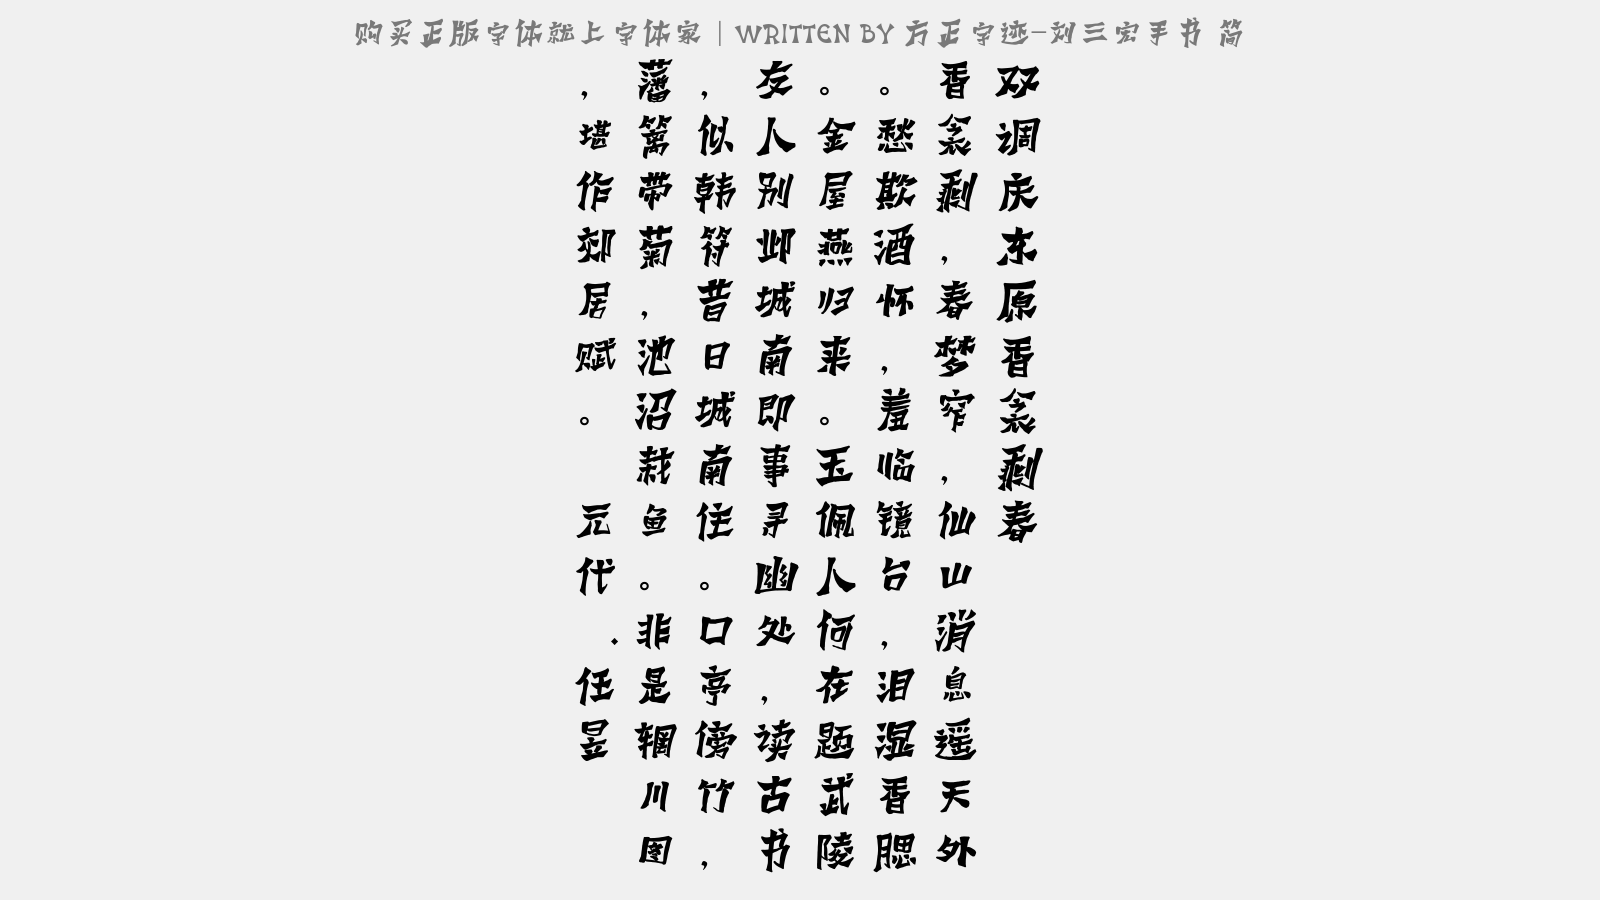 购买正版字体就上字体家｜WRITTEN BY 方正字迹-刘三宏手书 简
双调庆东原香衾剩春
香衾剩，春梦窄，仙山消息遥天外
。愁欺酒怀，羞临镜台，泪湿香腮
。金屋燕归来。玉佩人何在题武陵
友人别邺城南即事寻幽处，读古书
，似韩符昔日城南住。口亭傍竹，
藩篱带菊，池沼栽鱼。非是辋川图
，堪作郊居赋。元代.任昱